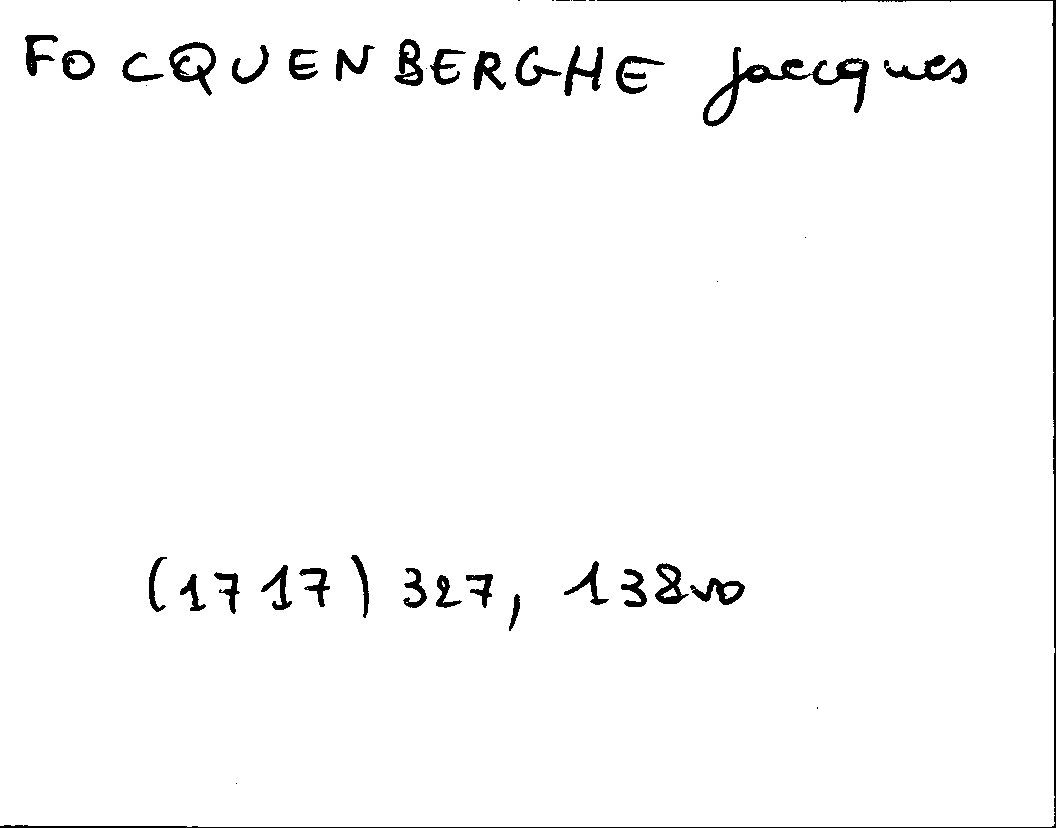 FOCQUENBERGHE Jaecques
(1717) 327, 138vo